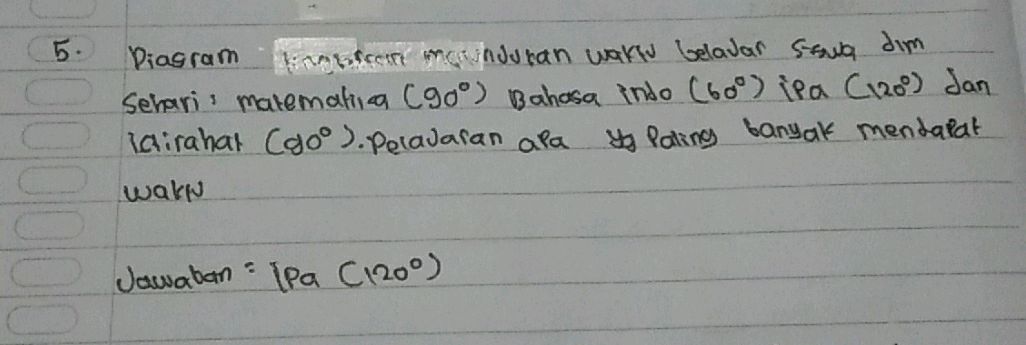 5. Diagram menunduran waktu beladar siswa dlm
Sehari: matematika (90°) Bahasa indo (60°) ipa (120°) dan
(90°). Peladaran apa yg Paling banyak mendapat
waktu
Jawaban = Ipa (120°)